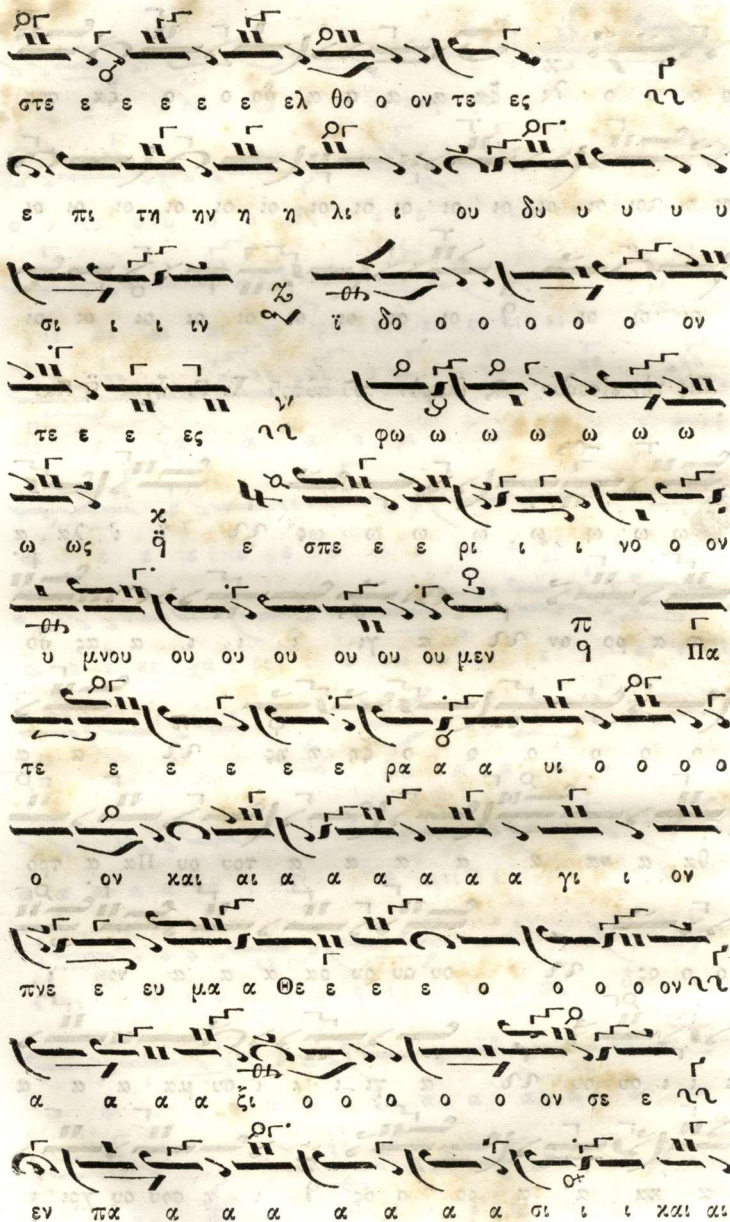 στε ε ε ε ε ε ελ θο ο ον τε ες
ε πι τη ην η η λι ι ου δυ υ υ υ υ
σι ι ι ιν ϊ δο ο ο ο ο ο ον
τε ε ε ες φω ω ω ω ω ω ω
ω ως ε σπε ε ε ρι ι ι νο ο ον
υ μνου ου ου ου ου ου ου μεν Πα
τε ε ε ε ε ε ρα α α υι ο ο ο ο
ο ον και αι α α α α α α γι ι ον
πνε ε ευ μα α Θε ε ε ε ο ο ο ο ον
α α α α ξι ο ο ο ο ο ον σε ε
εν πα α α α α α α σι ι ι και αι